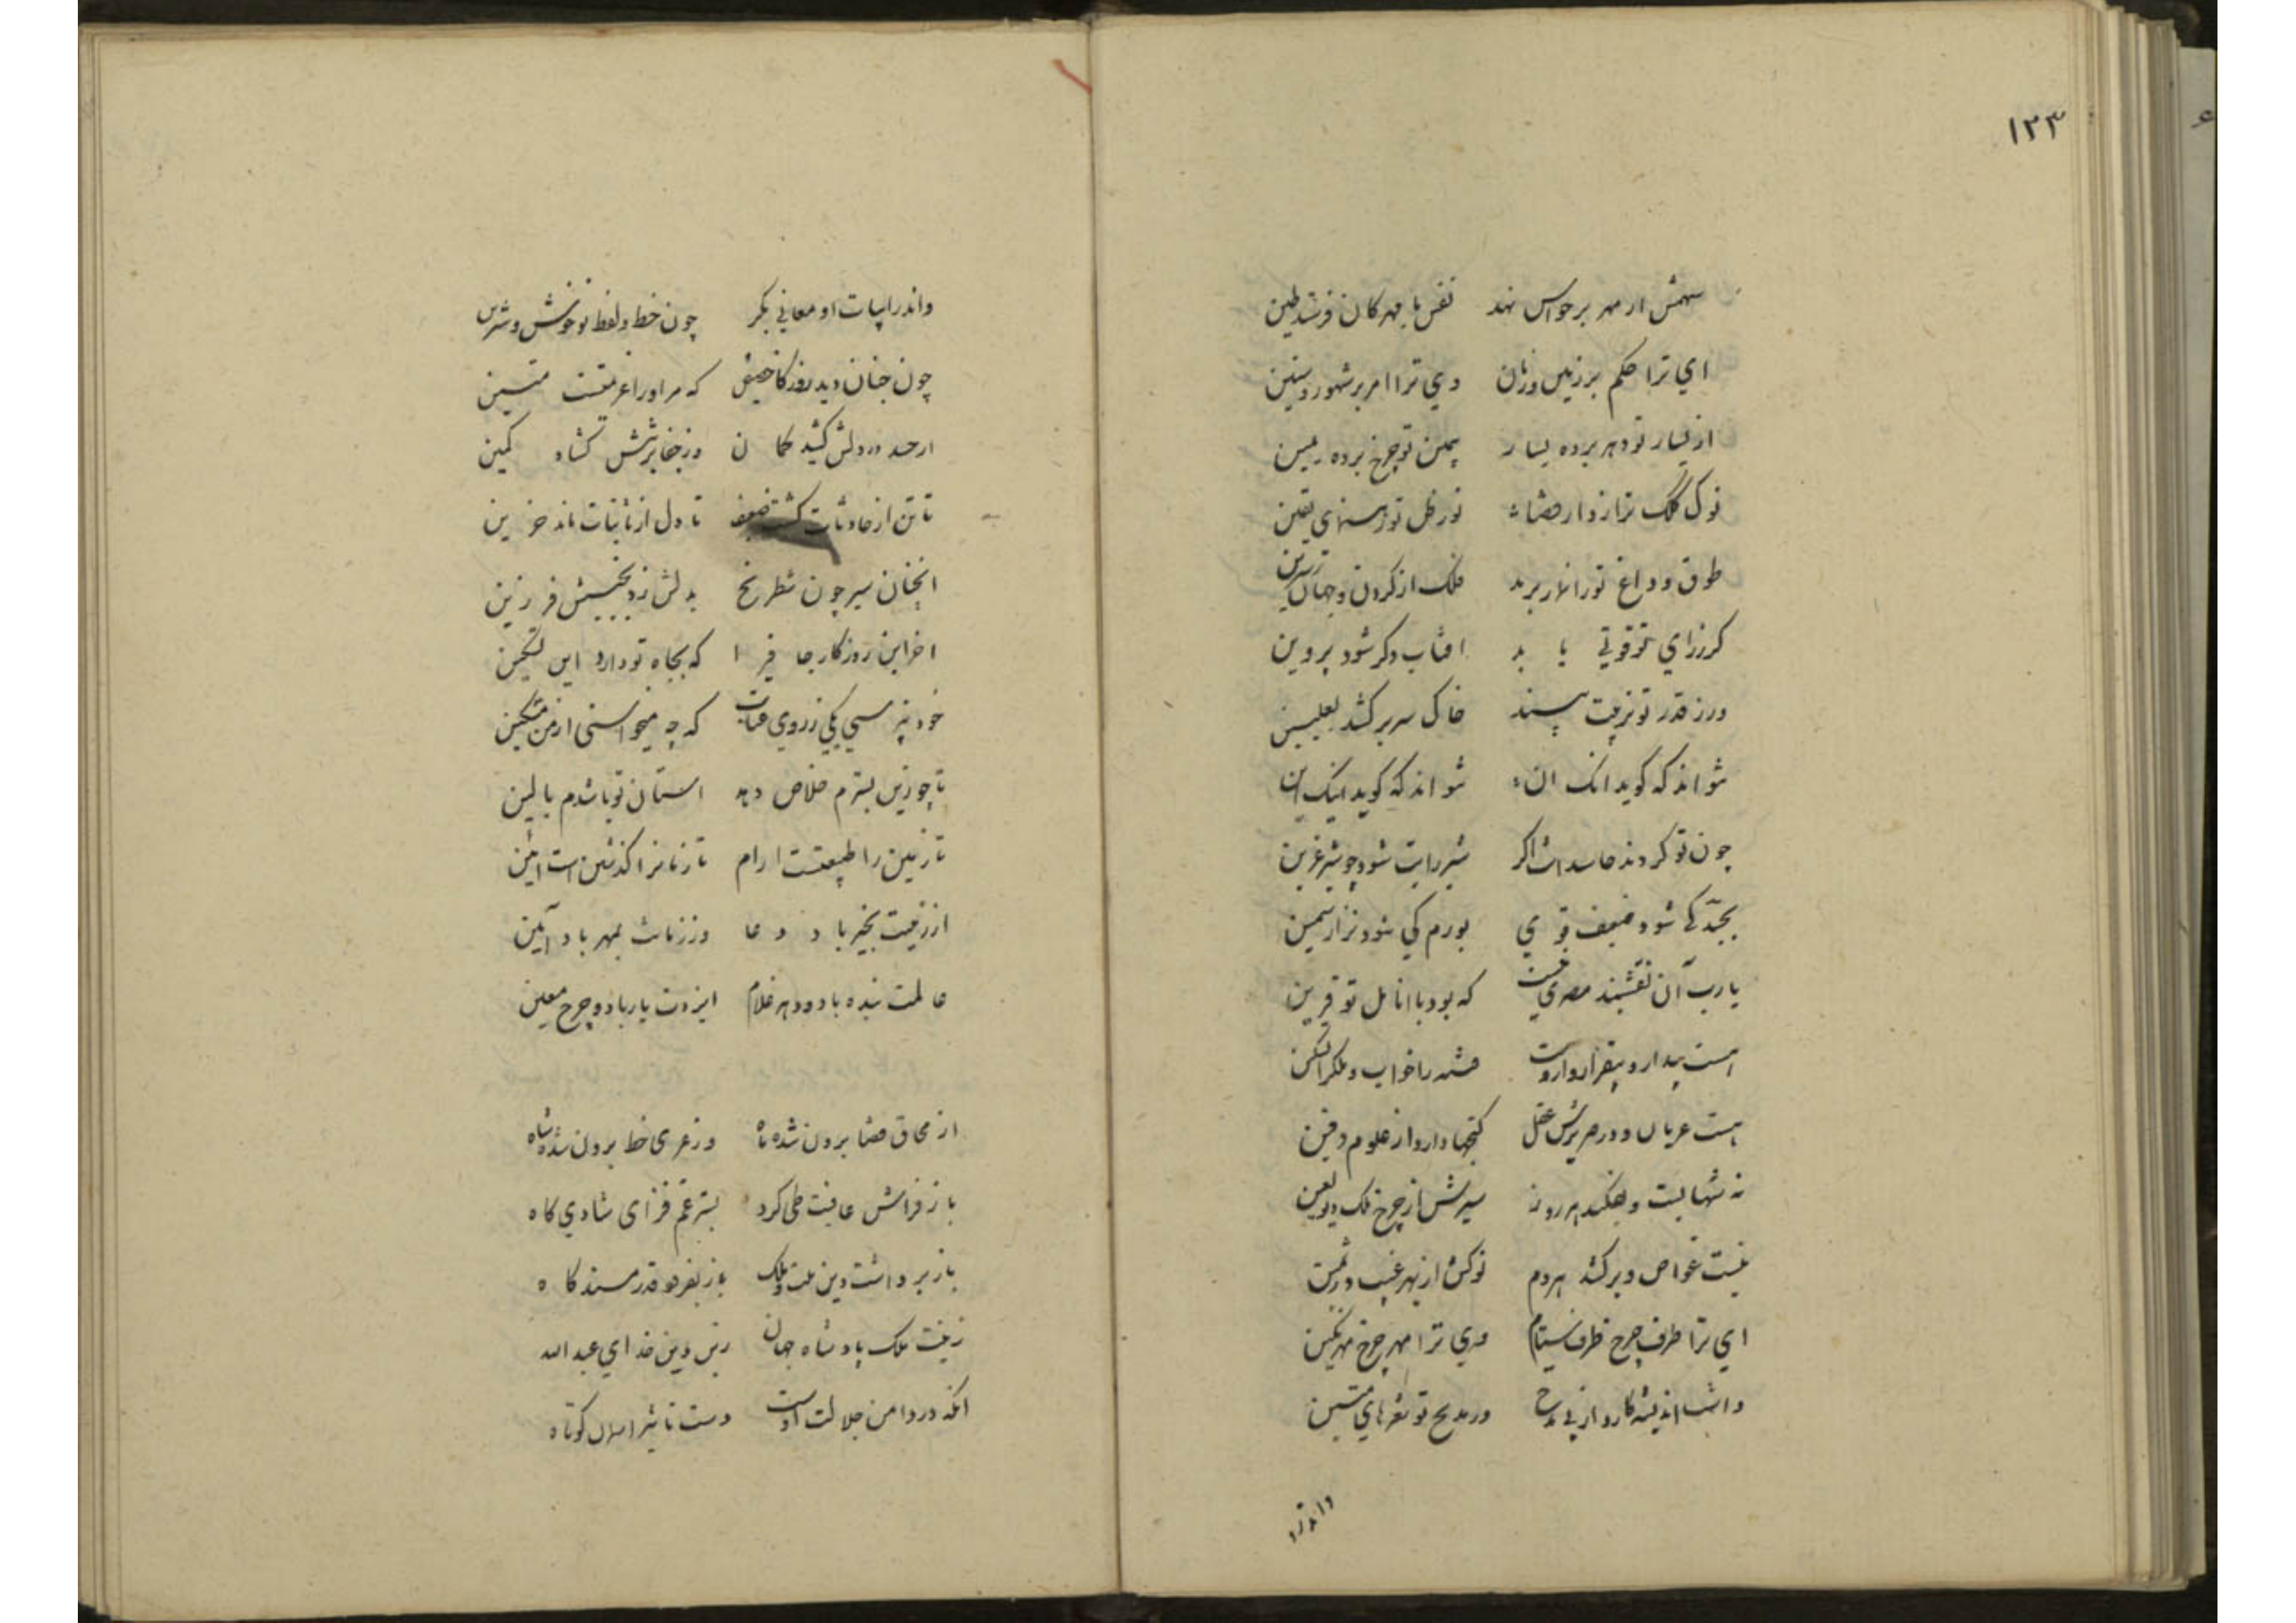 ۱۲۳
سهمش ار مهر بر حواس نهد نفس با مهر کان فرشد طین
ای ترا حکم بر زمین و زمان وی ترا امر بر شهور و سنین
از یسار تو دهر برده یسار بیمین تو چرخ برده یمین
نوک کلک ترا زدار قضا نور ظل تو یقین
طوق و داغ تورا نهار برند فلک از گردن و جهان زسرین
کر زرای تو قوتی یا بد افتاب دکر شود پروین
ورز قدر تو تربیت بیند خاک سر بر کشد بعلیین
تواند که گوید انک ان تواند که گوید اینک این
چون تو کردند حاسدانت اکر شیر رایت شود چو شیر عرین
بجد کجا شود ضعیف قوی بورم کی شود نزار سمین
یا رب آن نقشبند مصری چیست که بود با انامل تو قرین
هست بیدار و بیقرار و ازوست فتنه را خواب و ملک را تسکین
هست عریان و در صریرش عقل گنجها دارد از علوم دفین
نه شهابست و بفکند هر روز سیرش از چرخ ملک دیو لعین
نیست غواص و بر کشد هر دم نوکش از بهر غیب در ثمین
ای ترا طرف چرخ طرف ستام وی ترا مهر چرخ مهر نگین
داشت اندیشه کارد از پی مدح در مدیح تو شعرهای متین
واندر ا
واندر ابیات او معانی بکر چون خط و لفظ تو خوش و شیرین
چون چنان دید روزگار خبیث که مر او را عزیمتست متین
از حسد در دلش کشید کمان وز جفا بر تنش گشاد کمین
تا تن از حادثات گشت ضعیف تا دل از نائبات ماند حزین
انچنان سیر چون شطرنج بدلش زد بخبیثش فرزین
اخر این روزکار جافی را که بجاه تو دارد این تمکین
خود نپرسی یکی ز روی عتاب که چه میخواستی ازین مسکین
تا چو زین بسترم خلاص دهد استان تو باشدم بالین
تا زمین را طبیعتست ارام تا زمانرا گذشتن است ایین
از زمینت بخیر باد دعا وز زمانت بمهر باد آمین
عالمت بنده باد و دهر غلام ایزدت یار باد و چرخ معین
از محاق قضا برون شد ماه وز عری خطر برون شد شاه
باز فراش عافیت طی کرد بستر غم فزای شادی کاه
باز بر داشت دین ملت و ملک باز بفزود قدر مسند گاه
زینت ملک پادشاه جهان زین دین خدای عبد الله
انکه در دامن جلالت اوست دست تاثیر اسمان کوتاه